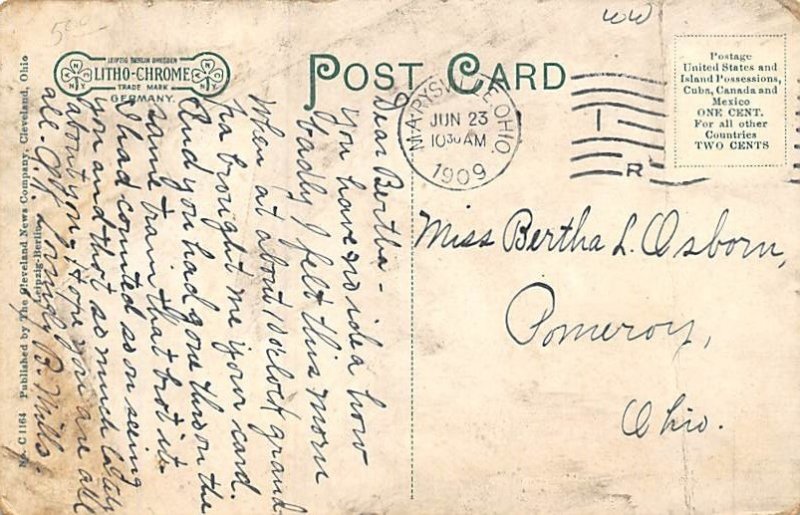 500-
WW
LEIPZIG BERLIN DRESDEN
LITHO-CHROME
TRADE MARK
GERMANY.
POST CARD
Postage
United States and
Island Possessions,
Cuba, Canada and
Mexico
ONE CENT.
For all other
Countries
TWO CENTS
MARYSVILLE, OHIO.
JUN 23
1030 AM
1909
I
R
Miss Bertha L. Osborn,
Pomeroy,
Ohio.
Dear Bertha-
You have no idea how
badly I felt this morn
when at about 10 o'clock grand
pa brought me your card.
And you had gone thro on the
same train that brot it.
I had counted so on seeing
you and thot so much lately
about you. Hope you are all
all. O.K. Lovingly R. Mills.
No. C 1164 Published by The Cleveland News Company, Cleveland, Ohio
Leipzig-Berlin